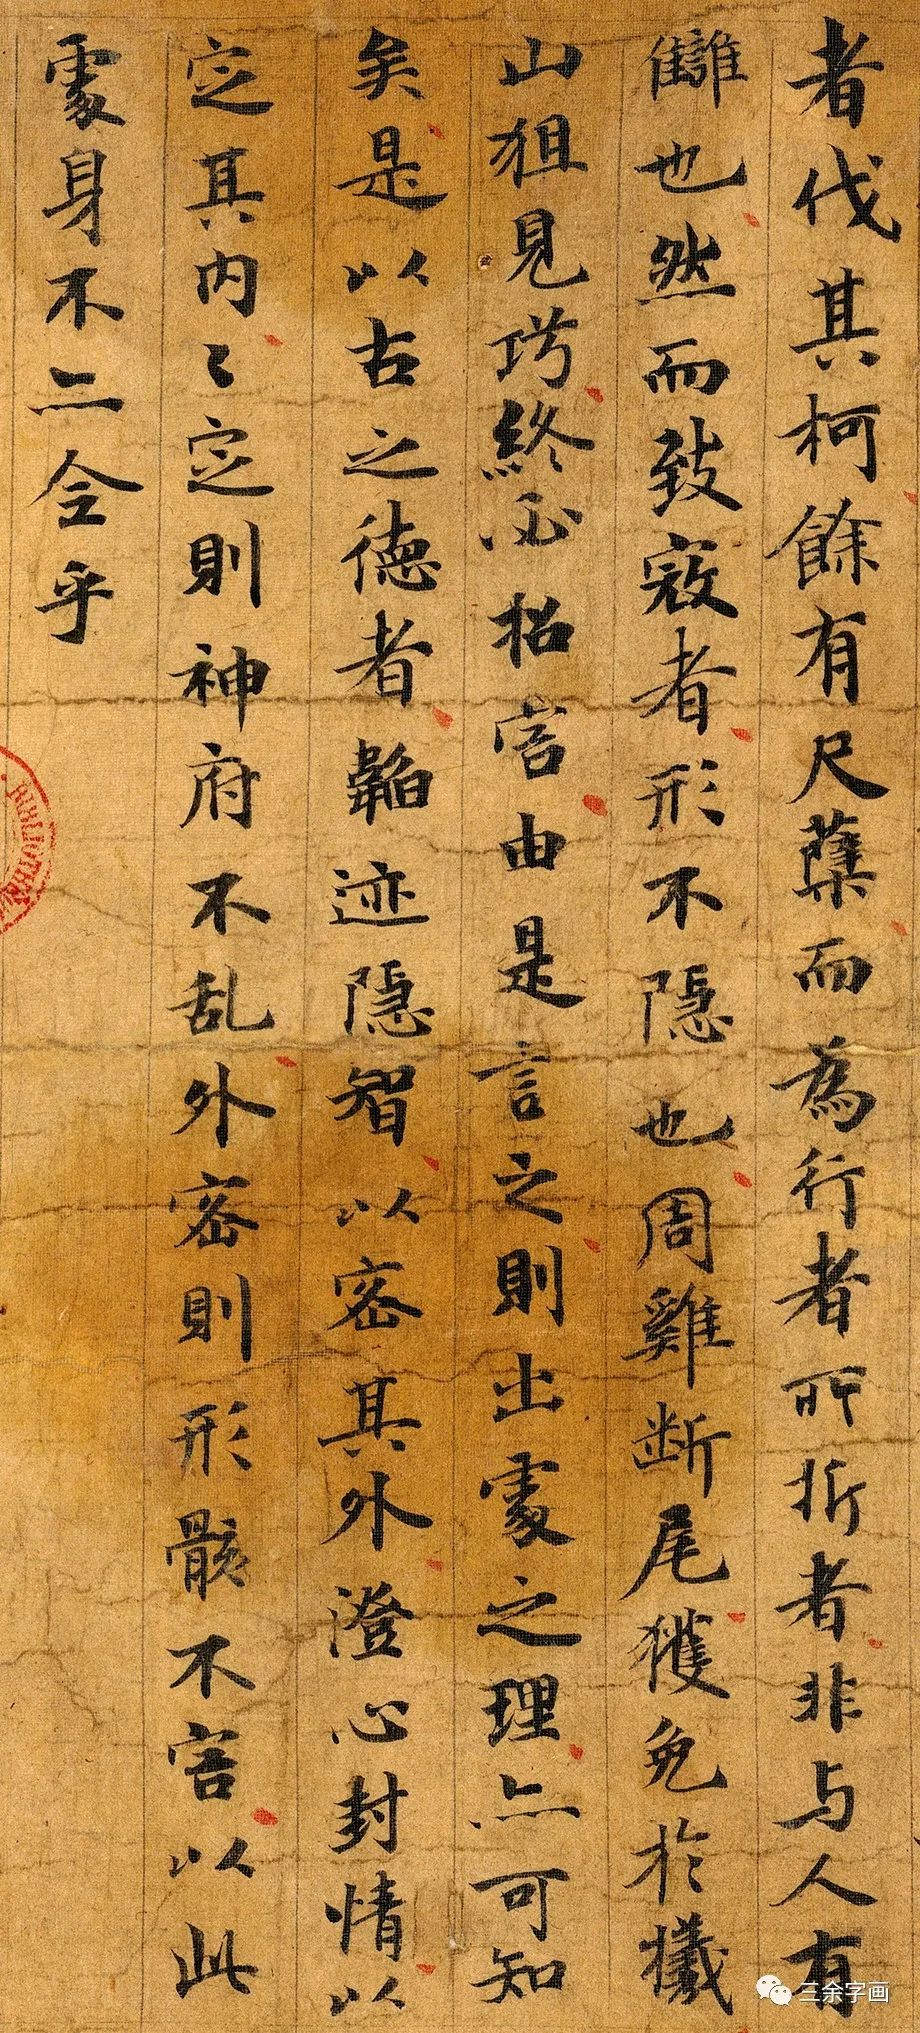 者伐其柯餘有尺蘖而為行者所折者非与人有
讎也然而致寇者形不隱也周雞断尾獲免於犧
山狙見巧終必招害由是言之則出處之理亦可知
矣是以古之德者韜迹隱智以密其外澄心封情以
定其内々定則神府不乱外密則形骸不害以此
處身不亦全乎
三余字画